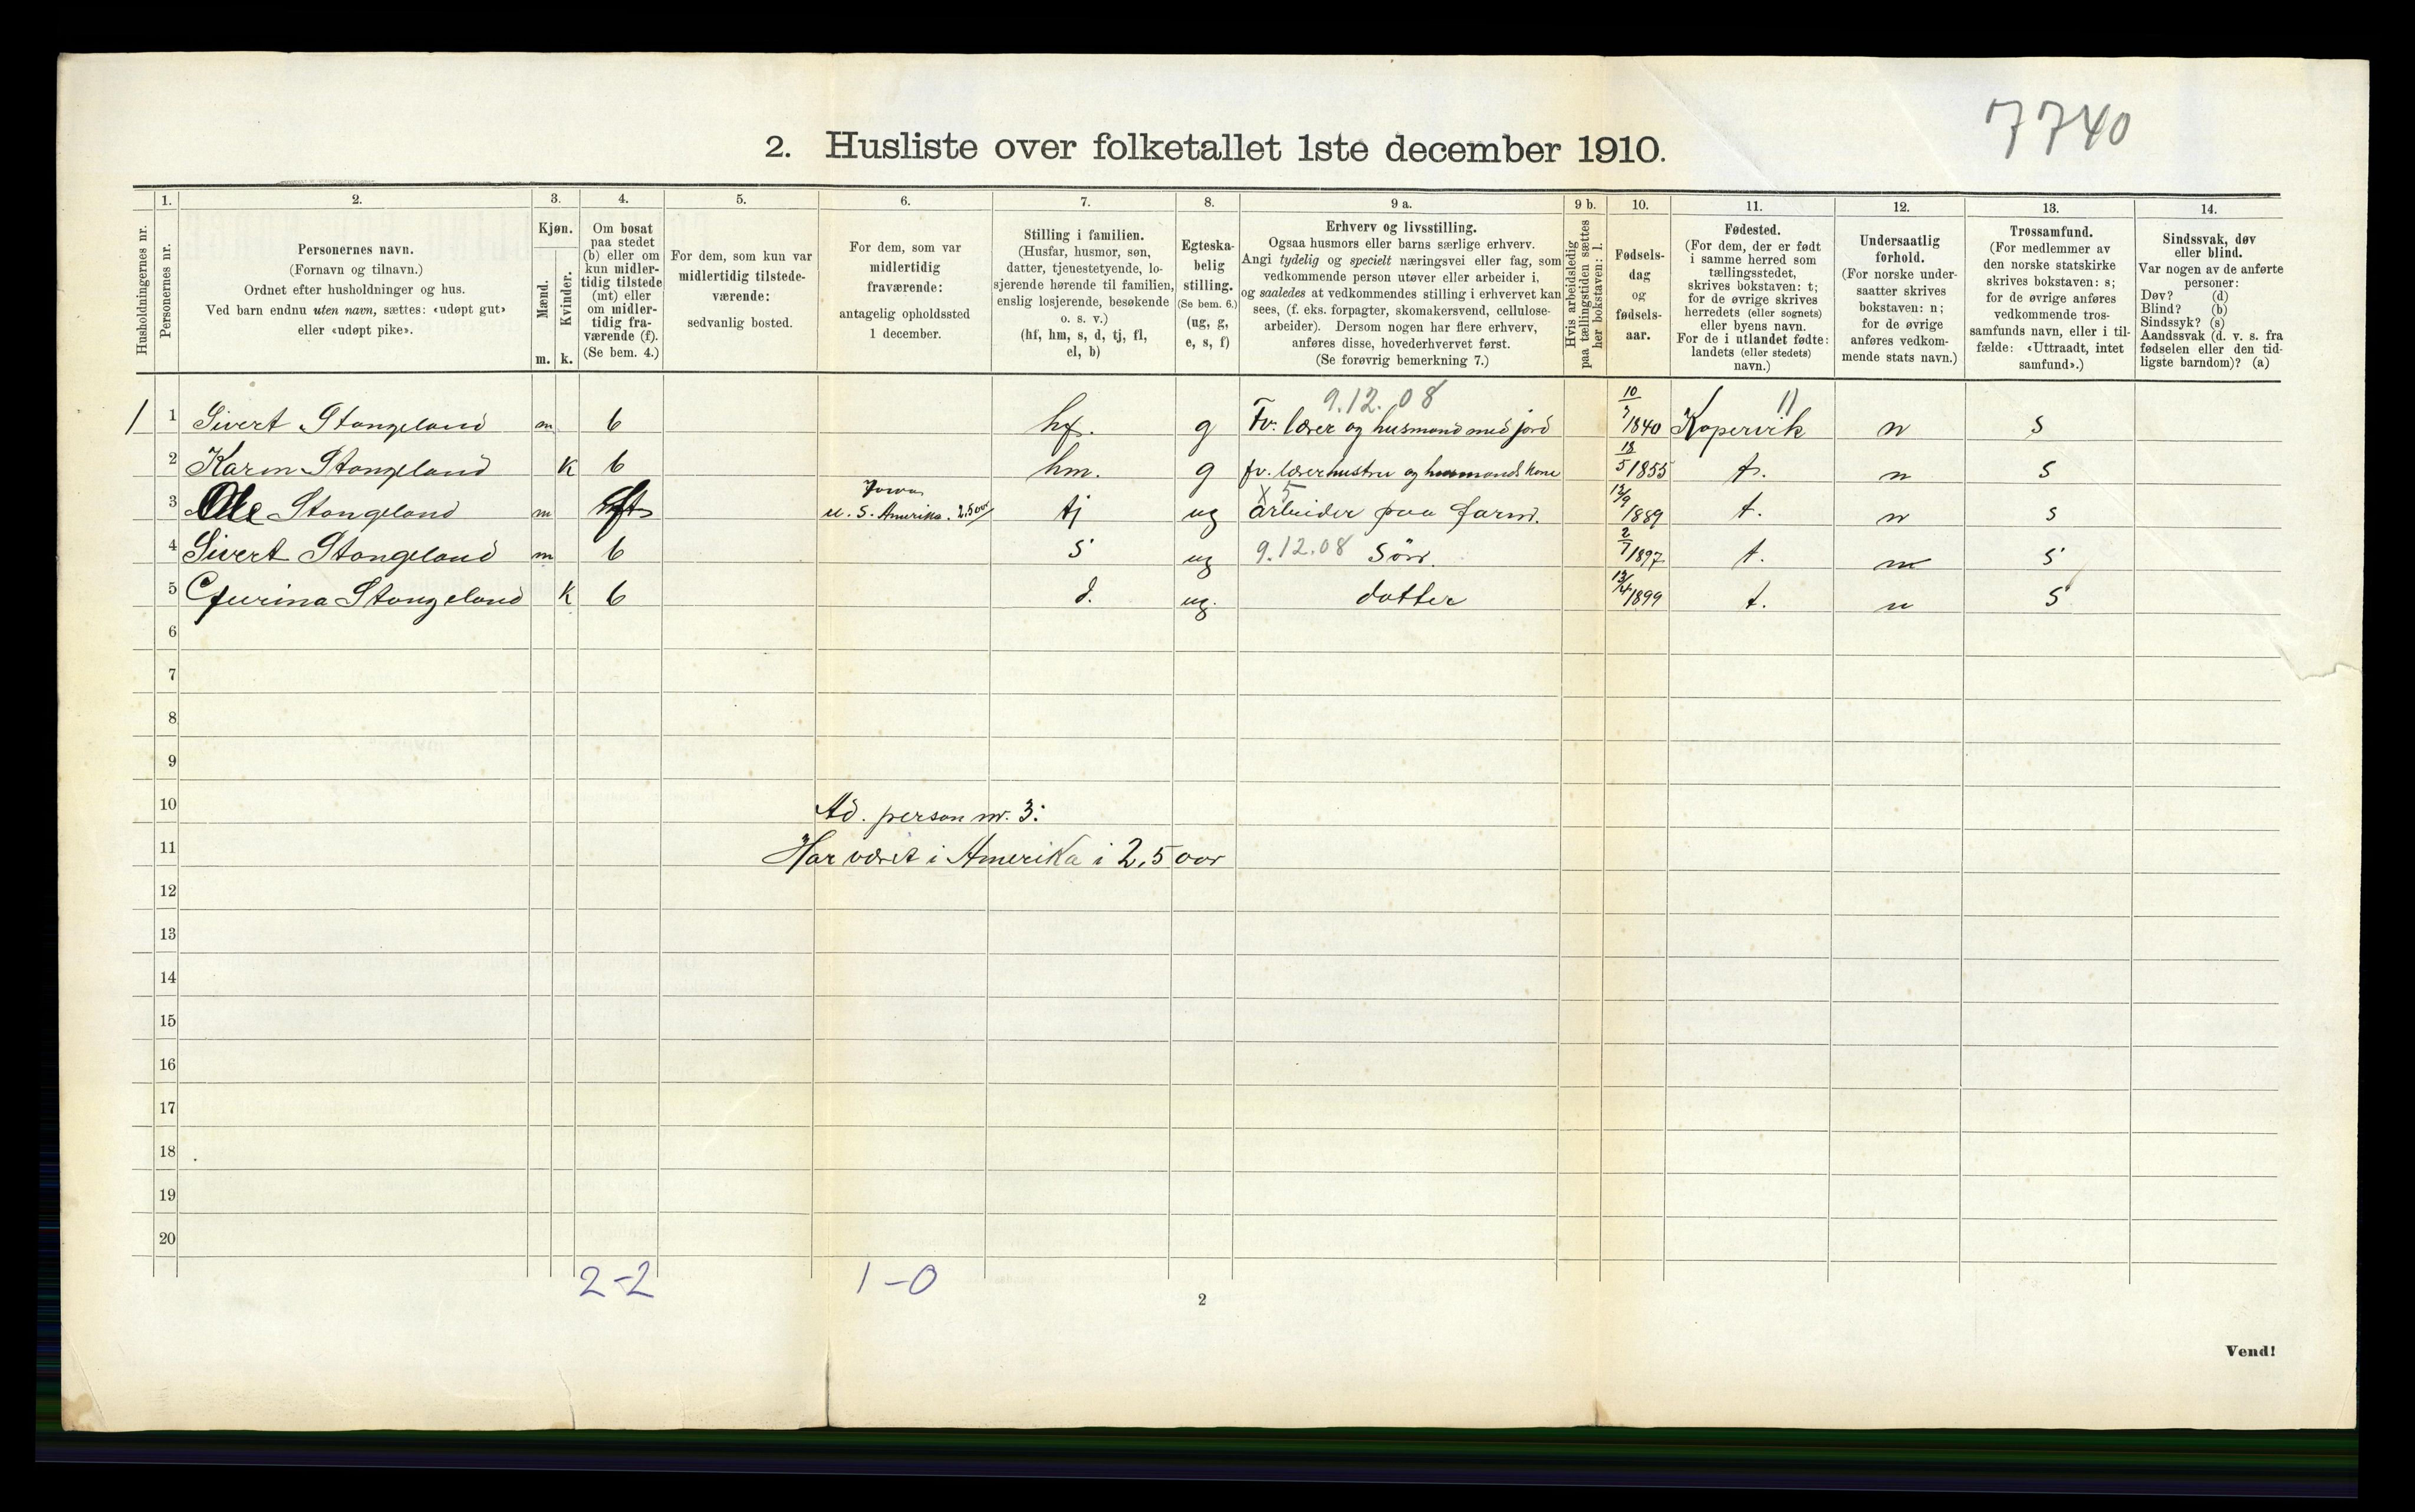 7740
2. Husliste over folketallet 1ste december 1910.
Husholdningernes nr.
1.
Personernes nr.
2.
Personernes navn.
(Fornavn og tilnavn.)
Ordnet efter husholdninger og hus.
Ved barn endnu uten navn, sættes: «udøpt gut»
eller «udøpt pike».
3.
Kjøn.
Mænd.
Kvinder.
m. k.
4.
Om bosat
paa stedet
(b) eller om
kun midler-
tidig tilstede
(mt) eller
om midler-
tidig fra-
værende (f).
(Se bem. 4.)
5.
For dem, som kun var
midlertidig tilstede-
værende:
sedvanlig bosted.
6.
For dem, som var
midlertidig
fraværende:
antagelig opholdssted
1 december.
7.
Stilling i familien.
(Husfar, husmor, søn,
datter, tjenestetyende, lo-
sjerende hørende til familien,
enslig losjerende, besøkende
o. s. v.)
(hf, hm, s, d, tj, fl,
el, b)
8.
Egteska-
belig
stilling.
(Se bem. 6.)
(ug, g,
e, s, f)
9 a.
Erhverv og livsstilling.
Ogsaa husmors eller barns særlige erhverv.
Angi tydelig og specielt næringsvei eller fag, som
vedkommende person utøver eller arbeider i,
og saaledes at vedkommendes stilling i erhvervet kan
sees, (f. eks. forpagter, skomakersvend, cellulose-
arbeider). Dersom nogen har flere erhverv,
anføres disse, hovederhvervet først.
(Se forøvrig bemerkning 7.)
9 b.
Hvis arbeidsledig
paa tællingstiden sættes
her bokstaven: l.
10.
Fødsels-
dag
og
fødsels-
aar.
11.
Fødested.
(For dem, der er født
i samme herred som
tællingsstedet,
skrives bokstaven: t;
for de øvrige skrives
herredets (eller sognets)
eller byens navn.
For de i utlandet fødte:
landets (eller stedets)
navn.)
12.
Undersaatlig
forhold.
(For norske under-
saatter skrives
bokstaven: n;
for de øvrige
anføres vedkom-
mende stats navn.)
13.
Trossamfund.
(For medlemmer av
den norske statskirke
skrives bokstaven: s;
for de øvrige anføres
vedkommende tros-
samfunds navn, eller i til-
fælde: «Uttraadt, intet
samfund».)
14.
Sindssvak, døv
eller blind.
Var nogen av de anførte
personer:
Døv? (d)
Blind? (b)
Sindssyk? (s)
Aandssvak (d. v. s. fra
fødselen eller den tid-
ligste barndom)? (a)
9.12.08
1 1 Sivert Stangeland m b hf. g Fv. lærer og husmand med jord 10/7 1840 Kopervik 11 n s
2 Karen Stangeland k b hm. g fv. lærerhustru og husmands kone 18/5 1855 t. n s
Iowa x 5
3 Ole Stangeland m ft U. S. Amerika. 2.5 aar tj ug arbeider paa farm. 12/9 1889 t. n s
4 Sivert Stangeland m b s ug 9.12.08 Søn. 2/7 1897 t. n s
5 Gurina Stangeland k b d. ug. datter 13/4 1899 t. n s
6
7
8
9
10 Ad. person nr. 3:
11 Har været i Amerika i 2,5 aar
12
13
14
15
16
17
18
19
20
2-2 1-0
2
Vend!